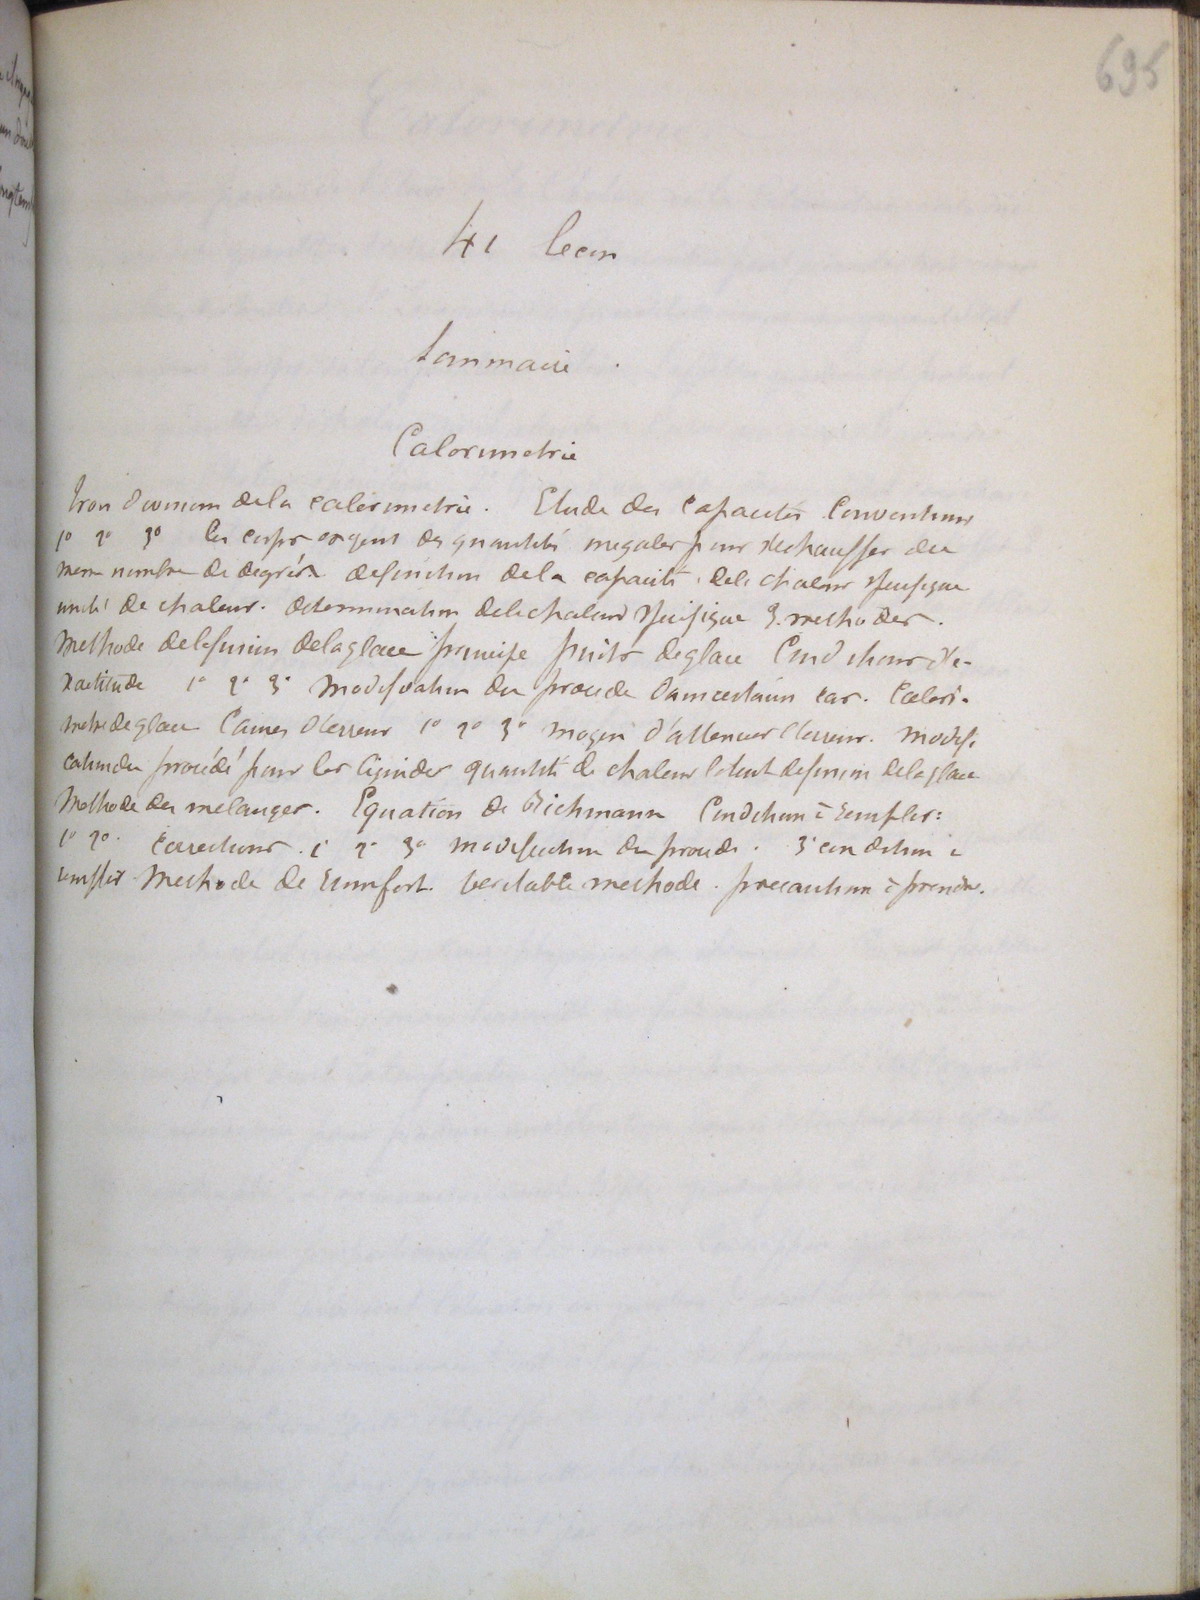 695
41 lecon
Sommaire.
Calorimetrie
Trois divisions dela calorimetrie. Etude des capacités Conventions
1° 2° 3° les corps exigent des quantités inegales pour s'echauffer du
meme nombre de degrés. definition dela capacité, dela chaleur specifique
unité de chaleur. determination dela chaleur specifique 3. methodes.
Methode dela fusion dela glace principe puits de glace Conditions d'e-
xactitude 1° 2° 3° modification du procede dans certains cas. Calori-
metre de glace Causes d'erreur 1° 2° 3° moyen d'attenuer l'erreur. modifi
cation du procédé pour les liquides quantité de chaleur latent de fusion dela glace
Methode des melanges. Equation de Richmann Condition à remplir:
1° 2°. Corrections. 1° 2° 3° modification du procede. 3° condition à
remplir Methode de Rumfort. veritable methode. precaution à prendre.